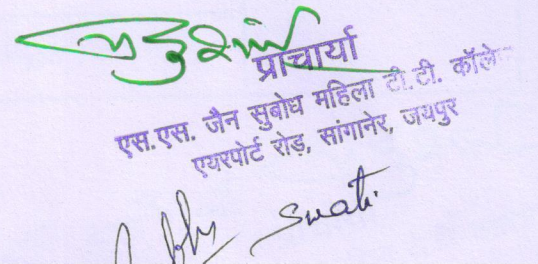 प्राचार्या
एस.एस. जैन सुबोध महिला टी.टी. कॉलेज
एयरपोर्ट रोड़, सांगानेर, जयपुर
Swati